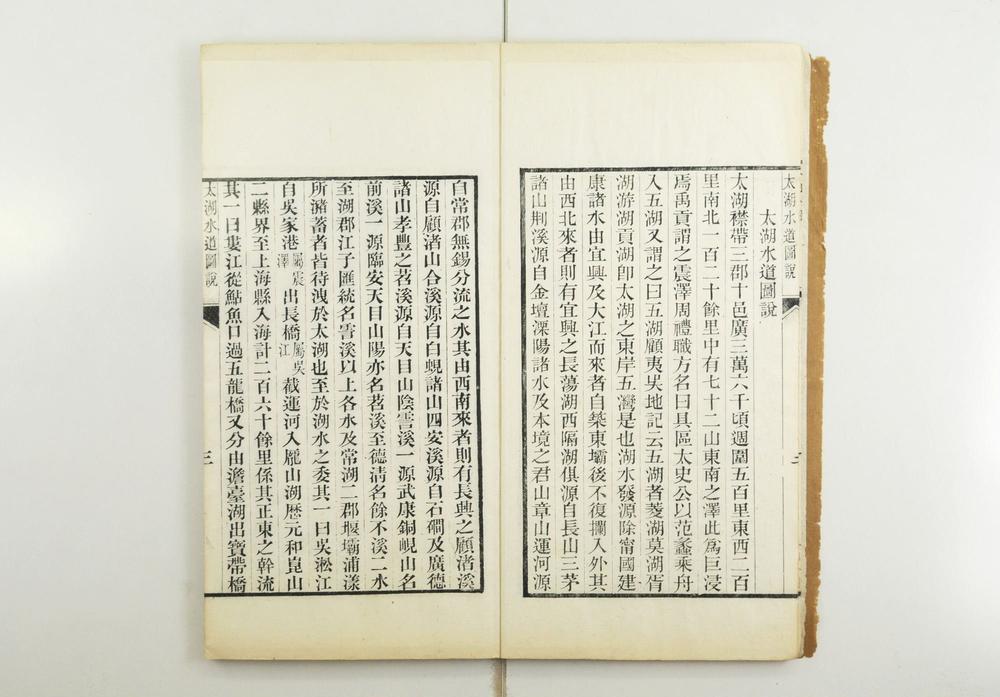 太湖水道圖說
太湖水道圖說
太湖襟帶三郡十邑廣三萬六千頃週圍五百里東西二百
里南北一百二十餘里中有七十二山東南之澤此爲巨浸
焉禹貢謂之震澤周禮職方名曰具區太史公以范蠡乘舟
入五湖又謂之曰五湖顧夷吳地記云五湖者菱湖莫湖胥
湖游湖貢湖卽太湖之東岸五灣是也湖水發源除甯國建
康諸水由宜興及大江而來者自築東壩後不復攔入外其
由西北來者則有宜興之長蕩湖西隔湖俱源自長山三茅
諸山荆溪源自金壇溧陽諸水及本境之君山章山運河源
三
自常郡無錫分流之水其由西南來者則有長興之顧渚溪
源自顧渚山合溪源自白蜆諸山四安溪源自石磵及廣德
諸山孝豐之苕溪源自天目山陰霅溪一源武康銅峴山名
前溪一源臨安天目山陽亦名苕溪至德清名餘不溪二水
至湖郡江子匯統名霅溪以上各水及常湖二郡堰壩浦漾
所瀦蓄者皆待洩於太湖也至於湖水之委其一曰吳淞江
自吳家港屬震澤出長橋屬吳江截運河入龐山湖歷元和崑山
二縣界至上海縣入海計二百六十餘里係其正東之幹流
其一曰婁江從鮎魚口過五龍橋又分由澹臺湖出寶帶橋
太湖水道圖說
三